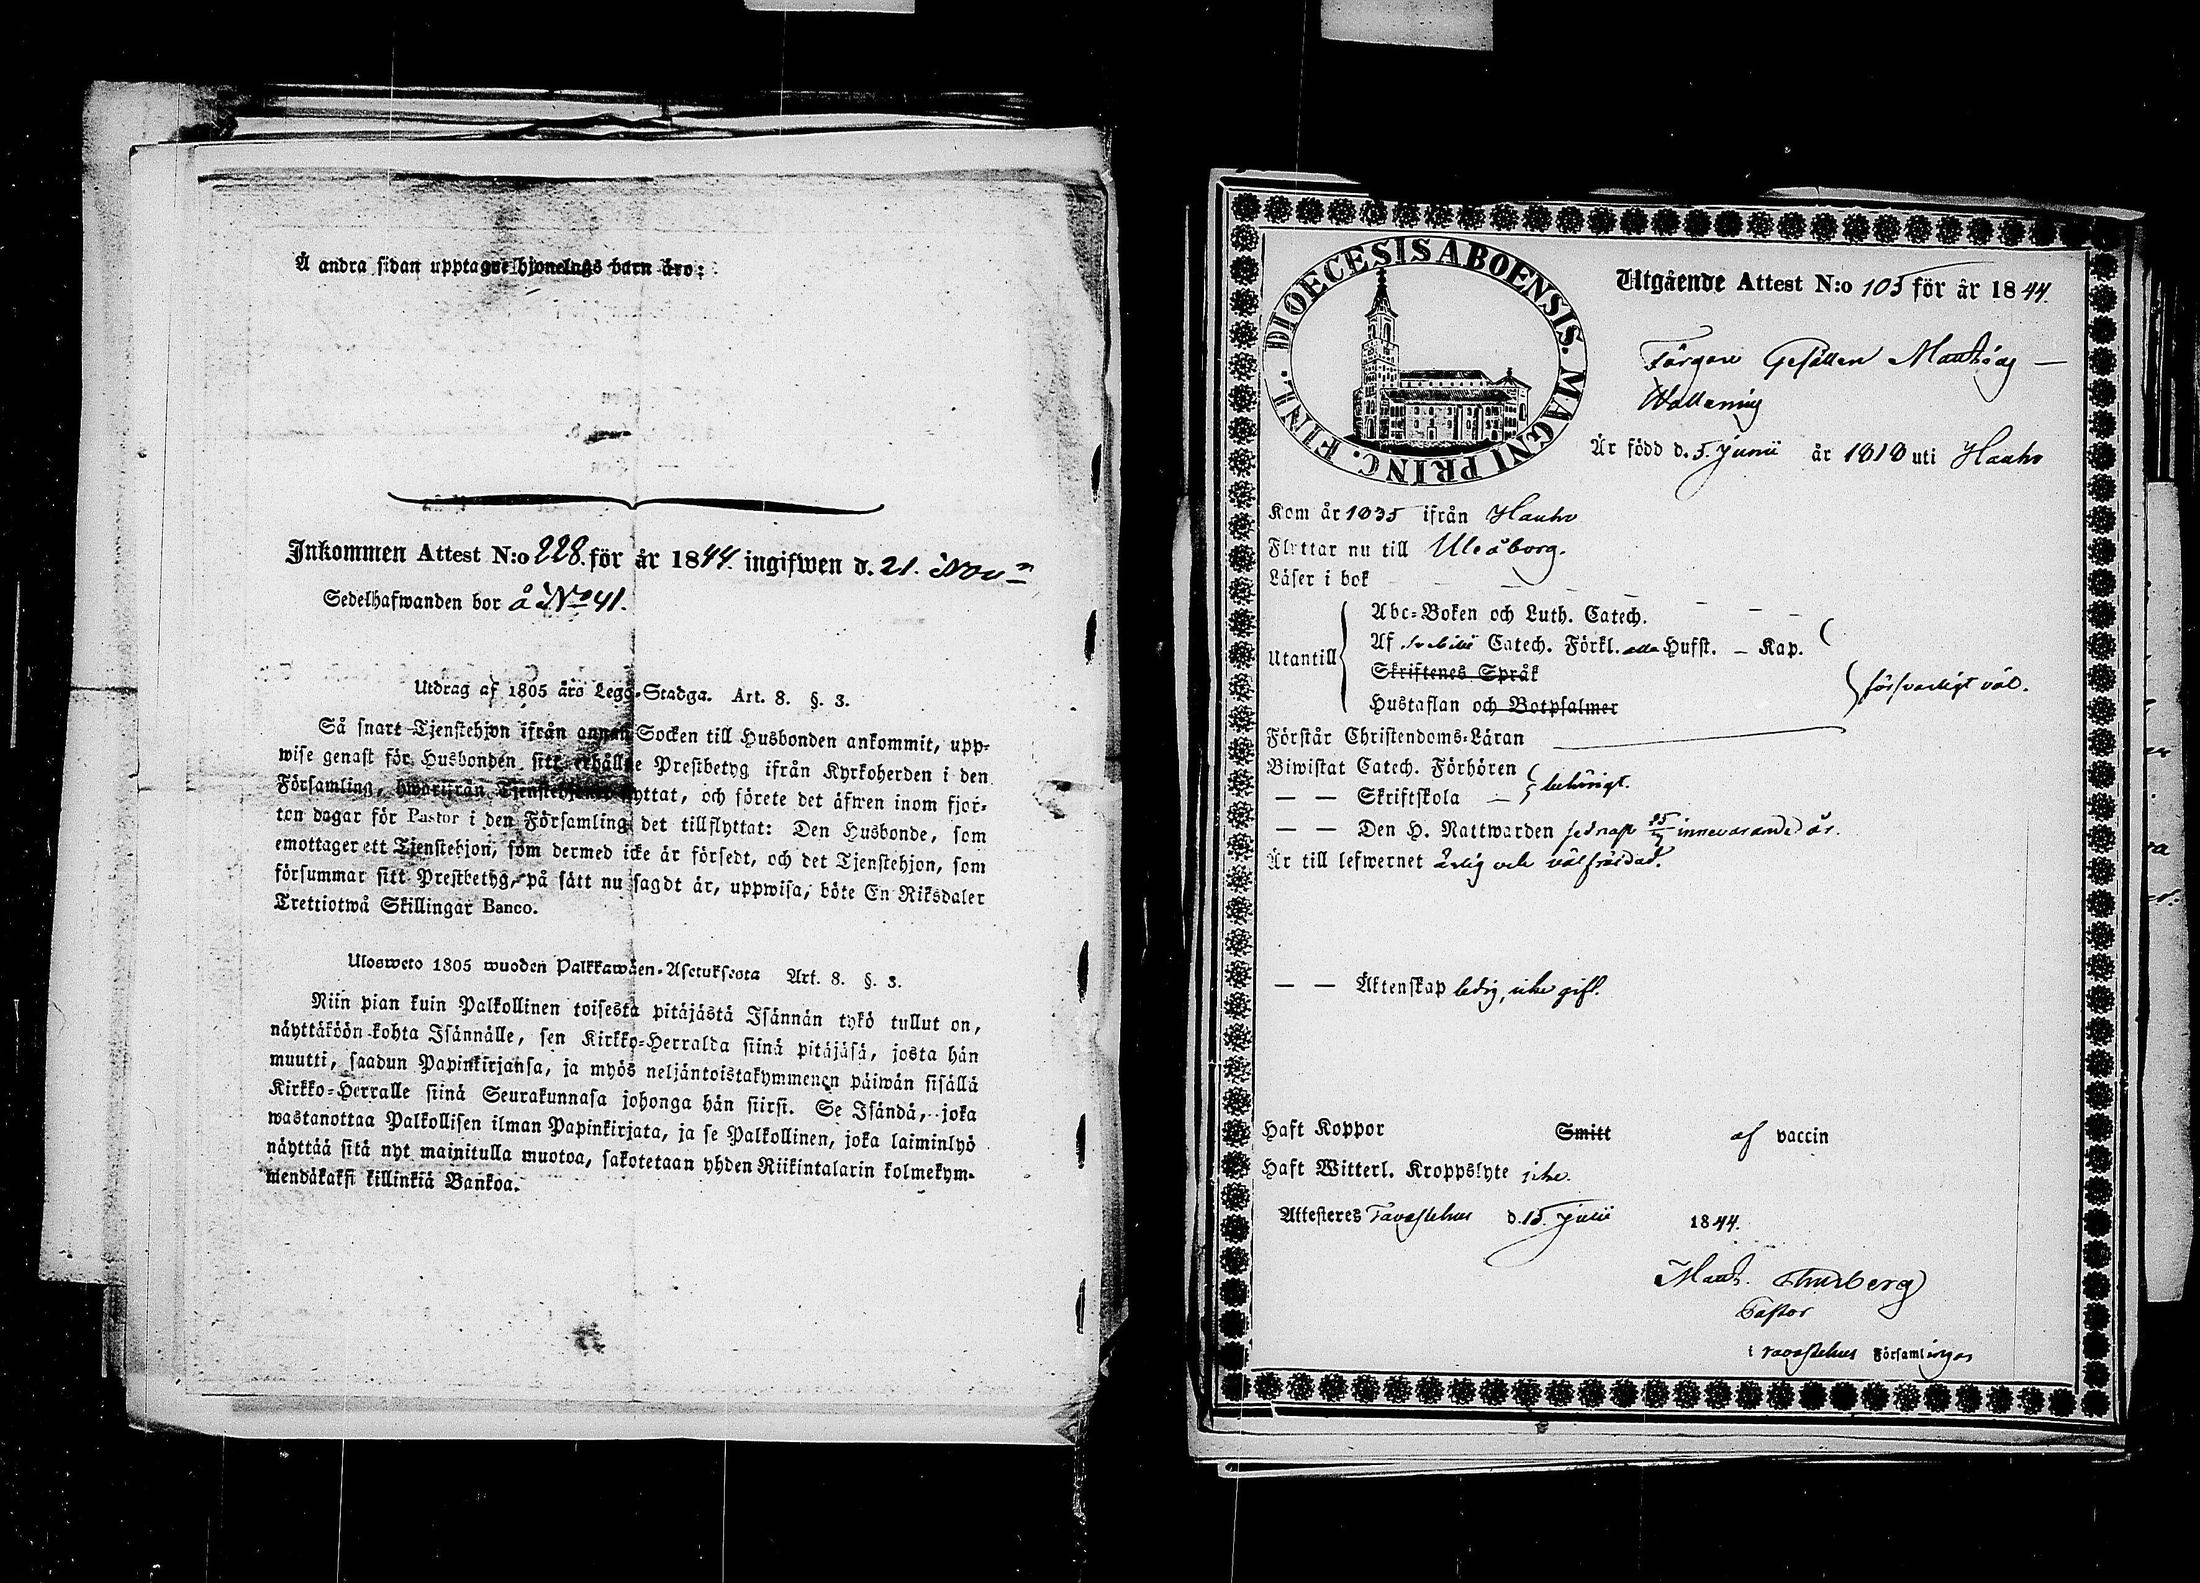 Å andra sidan upptagne hjonelags barn äro:
Inkommen Attest N:o 228. för år 1844. ingifwen d. 21. Nov
Sedelhafwanden bor å No 41.
Utdrag af 1805 års Lego-Stadga. Art. 8. §. 3.
Så snart Tjenstehjon ifrån annan Socken till Husbonden ankommit, upp-
wise genast för Husbonden sitt erhållne Prestbetyg ifrån Kyrkoherden i den
Församling, hwarifrån Tjenstehjonet flyttat, och förete det äfwen inom fjor-
ton dagar för Pastor i den Församling det tillflyttat: Den Husbonde, som
emottager ett Tjenstehjon, som dermed icke är försedt, och det Tjenstehjon, som
försummar sitt Prestbetyg, på sätt nu sagdt är, uppwisa, böte En Riksdaler
Trettiotwå Skillingar Banco.
Ulosweto 1805 wuoden Palkkawäen-Asetuksesta Art. 8. §. 3.
Niin pian kuin Palkollinen toisesta pitäjästä Isännän tykö tullut on,
näyttäköön kohta Isännälle, sen Kirkko-Herralda siinä pitäjäsä, josta hän
muutti, saadun Papinkirjansa, ja myös neljäntoistakymmenen päiwän sisällä
Kirkko-Herralle siinä Seurakunnasa johonga hän siirsi. Se Isändä, joka
wastanottaa Palkollisen ilman Papinkirjata, ja se Palkollinen, joka laiminlyö
näyttää sitä nyt mainitulla muotoa, sakotetaan yhden Riikintalarin kolmekym-
mendäkaksi killinkiä Bankoa.
DIOECESIS ABOENSIS. MAGNI PRINC. FINL.
Utgående Attest N:o 105 för år 1844.
Färgare Gesällen Matthias
Wallenius
Är född d. 5. Junii år 1818 uti Hauho
Kom år 1835 ifrån Hauho
Flyttar nu till Uleåborg.
Läser i bok
Utantill
Abc-Boken och Luth. Catech.
Af Svebilii Catech. Förkl. alla Hufst. – Kap.
Skriftenes Språk
Hustaflan och Botpsalmer
försvarligt väl.
Förstår Christendoms-Läran
Biwistat Catech. Förhören
— — Skriftskola — behörigt.
— — Den H. Nattwarden sednast innevarande år.
Är till lefwernet ärlig och välfräjdad.
— — Äktenskap ledig, icke gift.
Haft Koppor Smitt af vaccin
Haft Witterl. Kroppslyte icke.
Attesteres Tavastehus d. 15. Julii 1844.
Matth. Thurberg
Pastor
i Tavastehus Församlingar